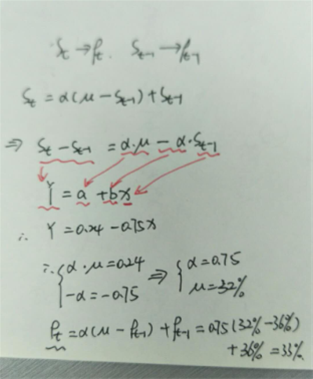 St → ρt. St-1 → ρt-1
St = α(μ - St-1) + St-1
⇒ St - St-1 = α·μ - α·St-1
Y = a + bx
∴ Y = 0.24 - 0.75x
∴ { α·μ = 0.24 ⇒ { α = 0.75
-α = -0.75 μ = 32%
ρt = α(μ - ρt-1) + ρt-1 = 0.75(32% - 36%)
+ 36% = 33%